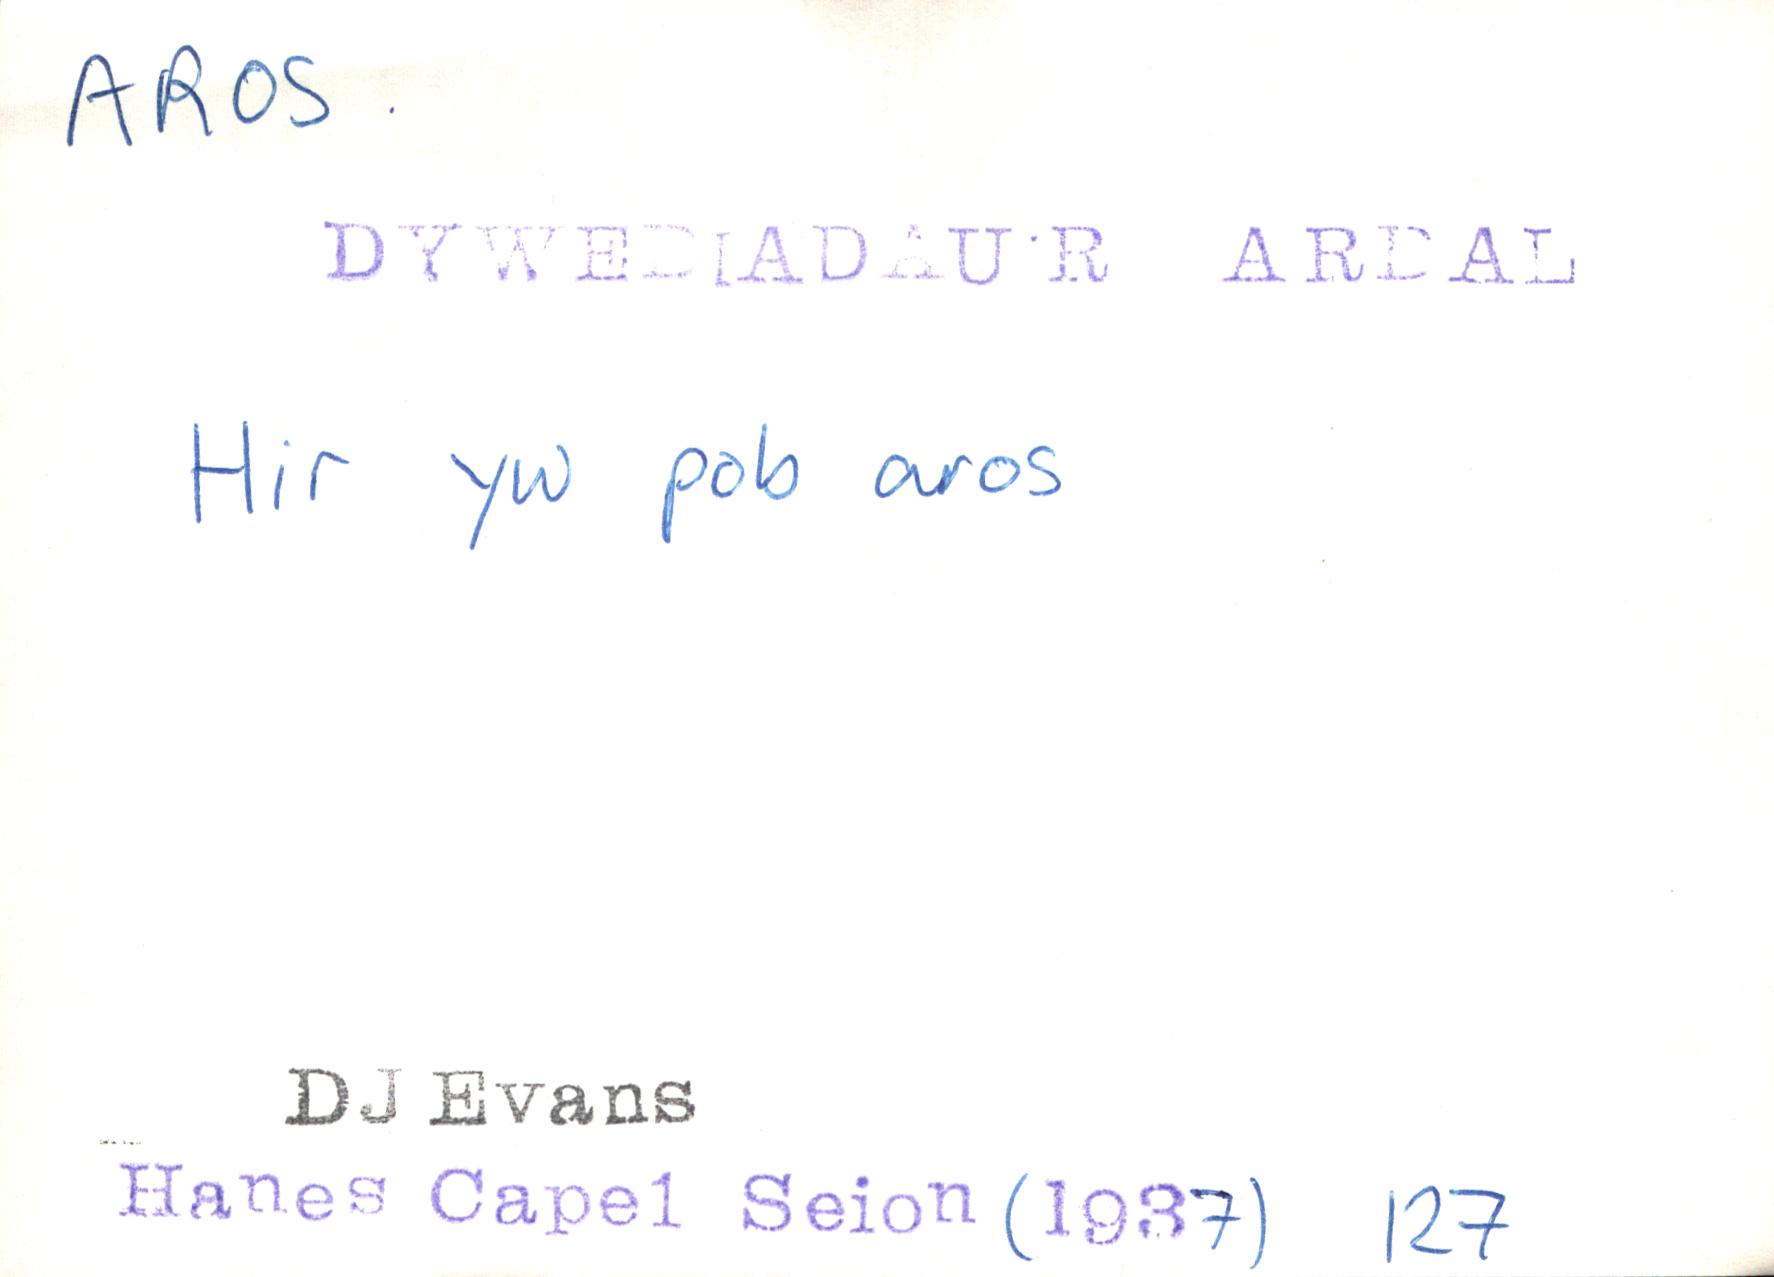 AROS.
DYWEDIADAU'R ARDAL
Hir yw pob aros
DJ Evans
Hanes Capel Seion (1937) 127